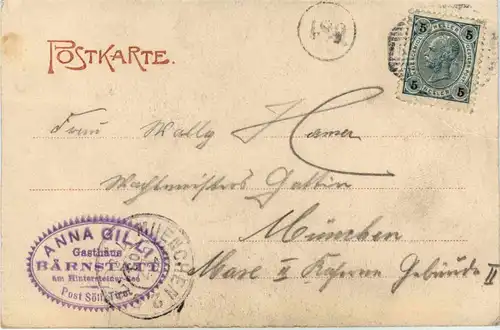 POSTKARTE.
5 HELLER 5
5 HELLER 5
Frau Wally Hamer
Wachtmeisters Gattin
München
Max II Kaserne Gebäude II
MUENCHEN
ANNA GILLI
Gasthaus
BÄRNSTATT
am Hintersteiner-See
Post Söll, Tirol